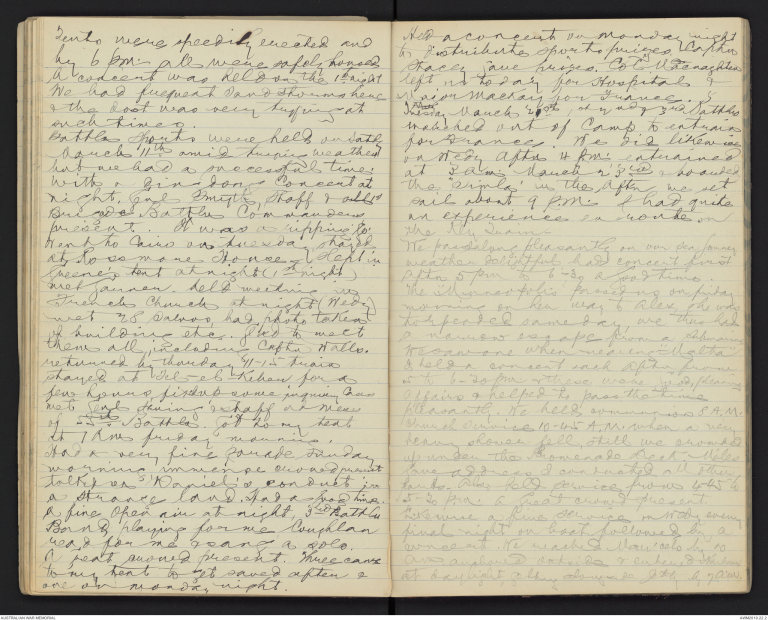 Tents were speedily erected and
by 6 pm all were safely housed
A concert was held on the 1st night
We had frequent sand storms here
& the dust was very trying at
such times.
Battln Sports were held on Satdy
March 11th amid trying weather
but we had a successful time.
With a Concert at
night. Genl Smyth, Staff & all 1st
Bri Battln Commanders
present. It was a ripping go
Went to Cairo on tuesday, stayed
at Rossmore House, slept in
tent at night (1st night)
met held meeting in
French Church at night (Wed)
met 28 Salvos, had photo taken
of building etc. Glad to meet
them all, including Captn Walls.
returned by thursday 11-15 train
stayed at Tel-el-Kebir for a
few hours fixed some
met Genl Irving & staff in mess
of 55th Battln. got to my tent
at 1 Am friday morning.
Had a very fine parade Sunday
morning immense crowd present
talked on "Daniel's conduct in
a strange land. Had a good time.
a fine Open air at night, 3rd Battln
Band playing for me Coughlan
read for me & sang a solo.
A great crowd present. Three came
to my tent to get saved after &
one on monday night.
Held a concert on monday night
to distribute sports prizes, Captn
Stacey gave prizes. Col McNaghten
left us today for Hospital &
Major Mackay for France.
Tuesday March 21st, 1st, 2nd & 3rd Battlns
marched out of Camp to entrain
for France. We did likewise
on Wedy Aftn 4 P.m. entrained
at 3 Am March 23rd & boarded
the Simla in the Aftn, we set
sail about 9 P.m. I had quite
an experience en route on
the Rly Train.
We passed along pleasantly on our journey
weather delightful had concert first
Aftn 5 pm to 6-30 a good time.
The Minneapolis preceding us friday
morning on her way to Alex. she was
torpedoed same day we thus had
a narrow escape from a Submarine
We saw one when nearing Malta
I held a concert each Aftn from
5 to 6-30 pm & these were good, pleasing
affairs & helped to pass the time
pleasantly. We held communion 8 A.M.
Church Service 10-45 A.M. when a very
heavy shower fell, still we crowded
up under the Promenade Deck. Miles
gave address I conducted all other
parts. Also held service from 4-45 to
5-30 Pm. a great crowd present
Likewise a fine service on Wedy evening
final night on boat followed by a
concert. We reached by 10
Am anchored outside & entered
at daylight 7 am.
AUSTRALIAN WAR MEMORIAL